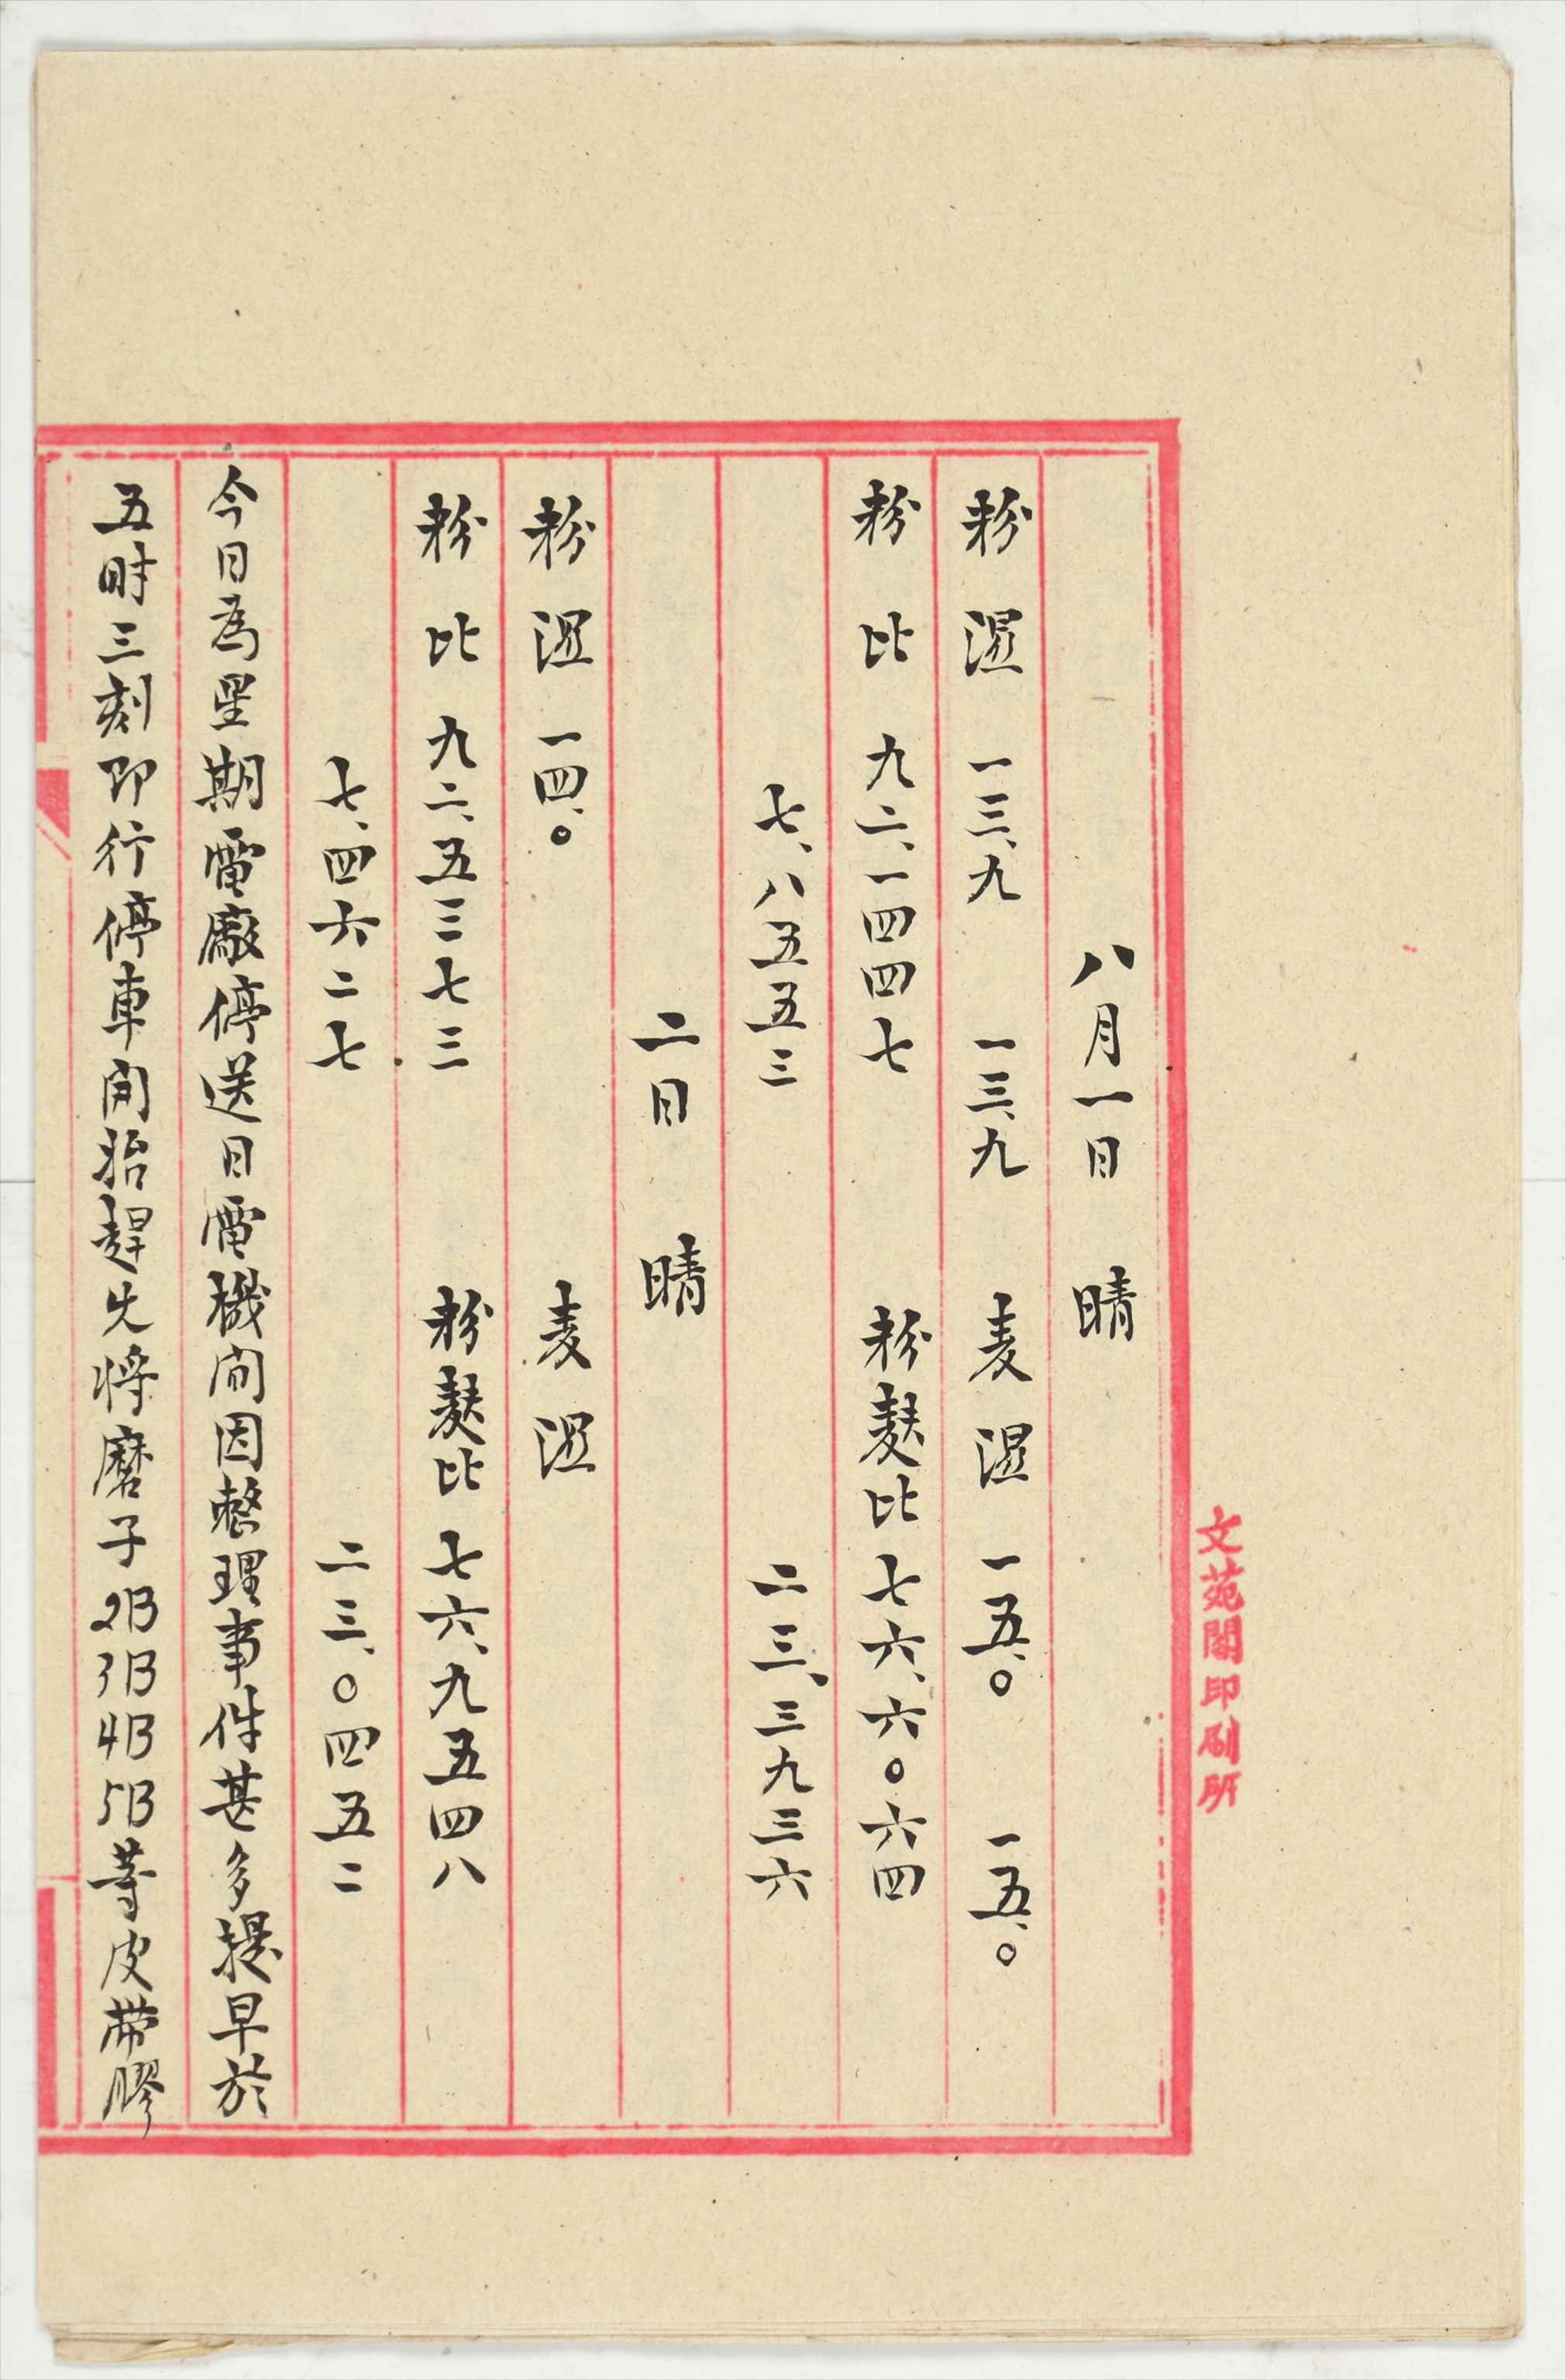 八月一日　晴
粉濕　一三、九　一三、九　麦濕　一五、〇　一五、〇
粉比　九二、一四四七　粉麩比　七六、六〇六四
七、八五五三　二三、三九三六
二日　晴
粉濕　一四、〇　麦濕
粉比　九二、五三七三　粉麩比　七六、九五四八
七、四六二七　二三、〇四五二
今日為星期電廠停送日電機間因整理事件甚多提早於
五时三刻即行停車開始趕先将磨子2B3B4B5B等皮帶膠
文苑閣印刷所